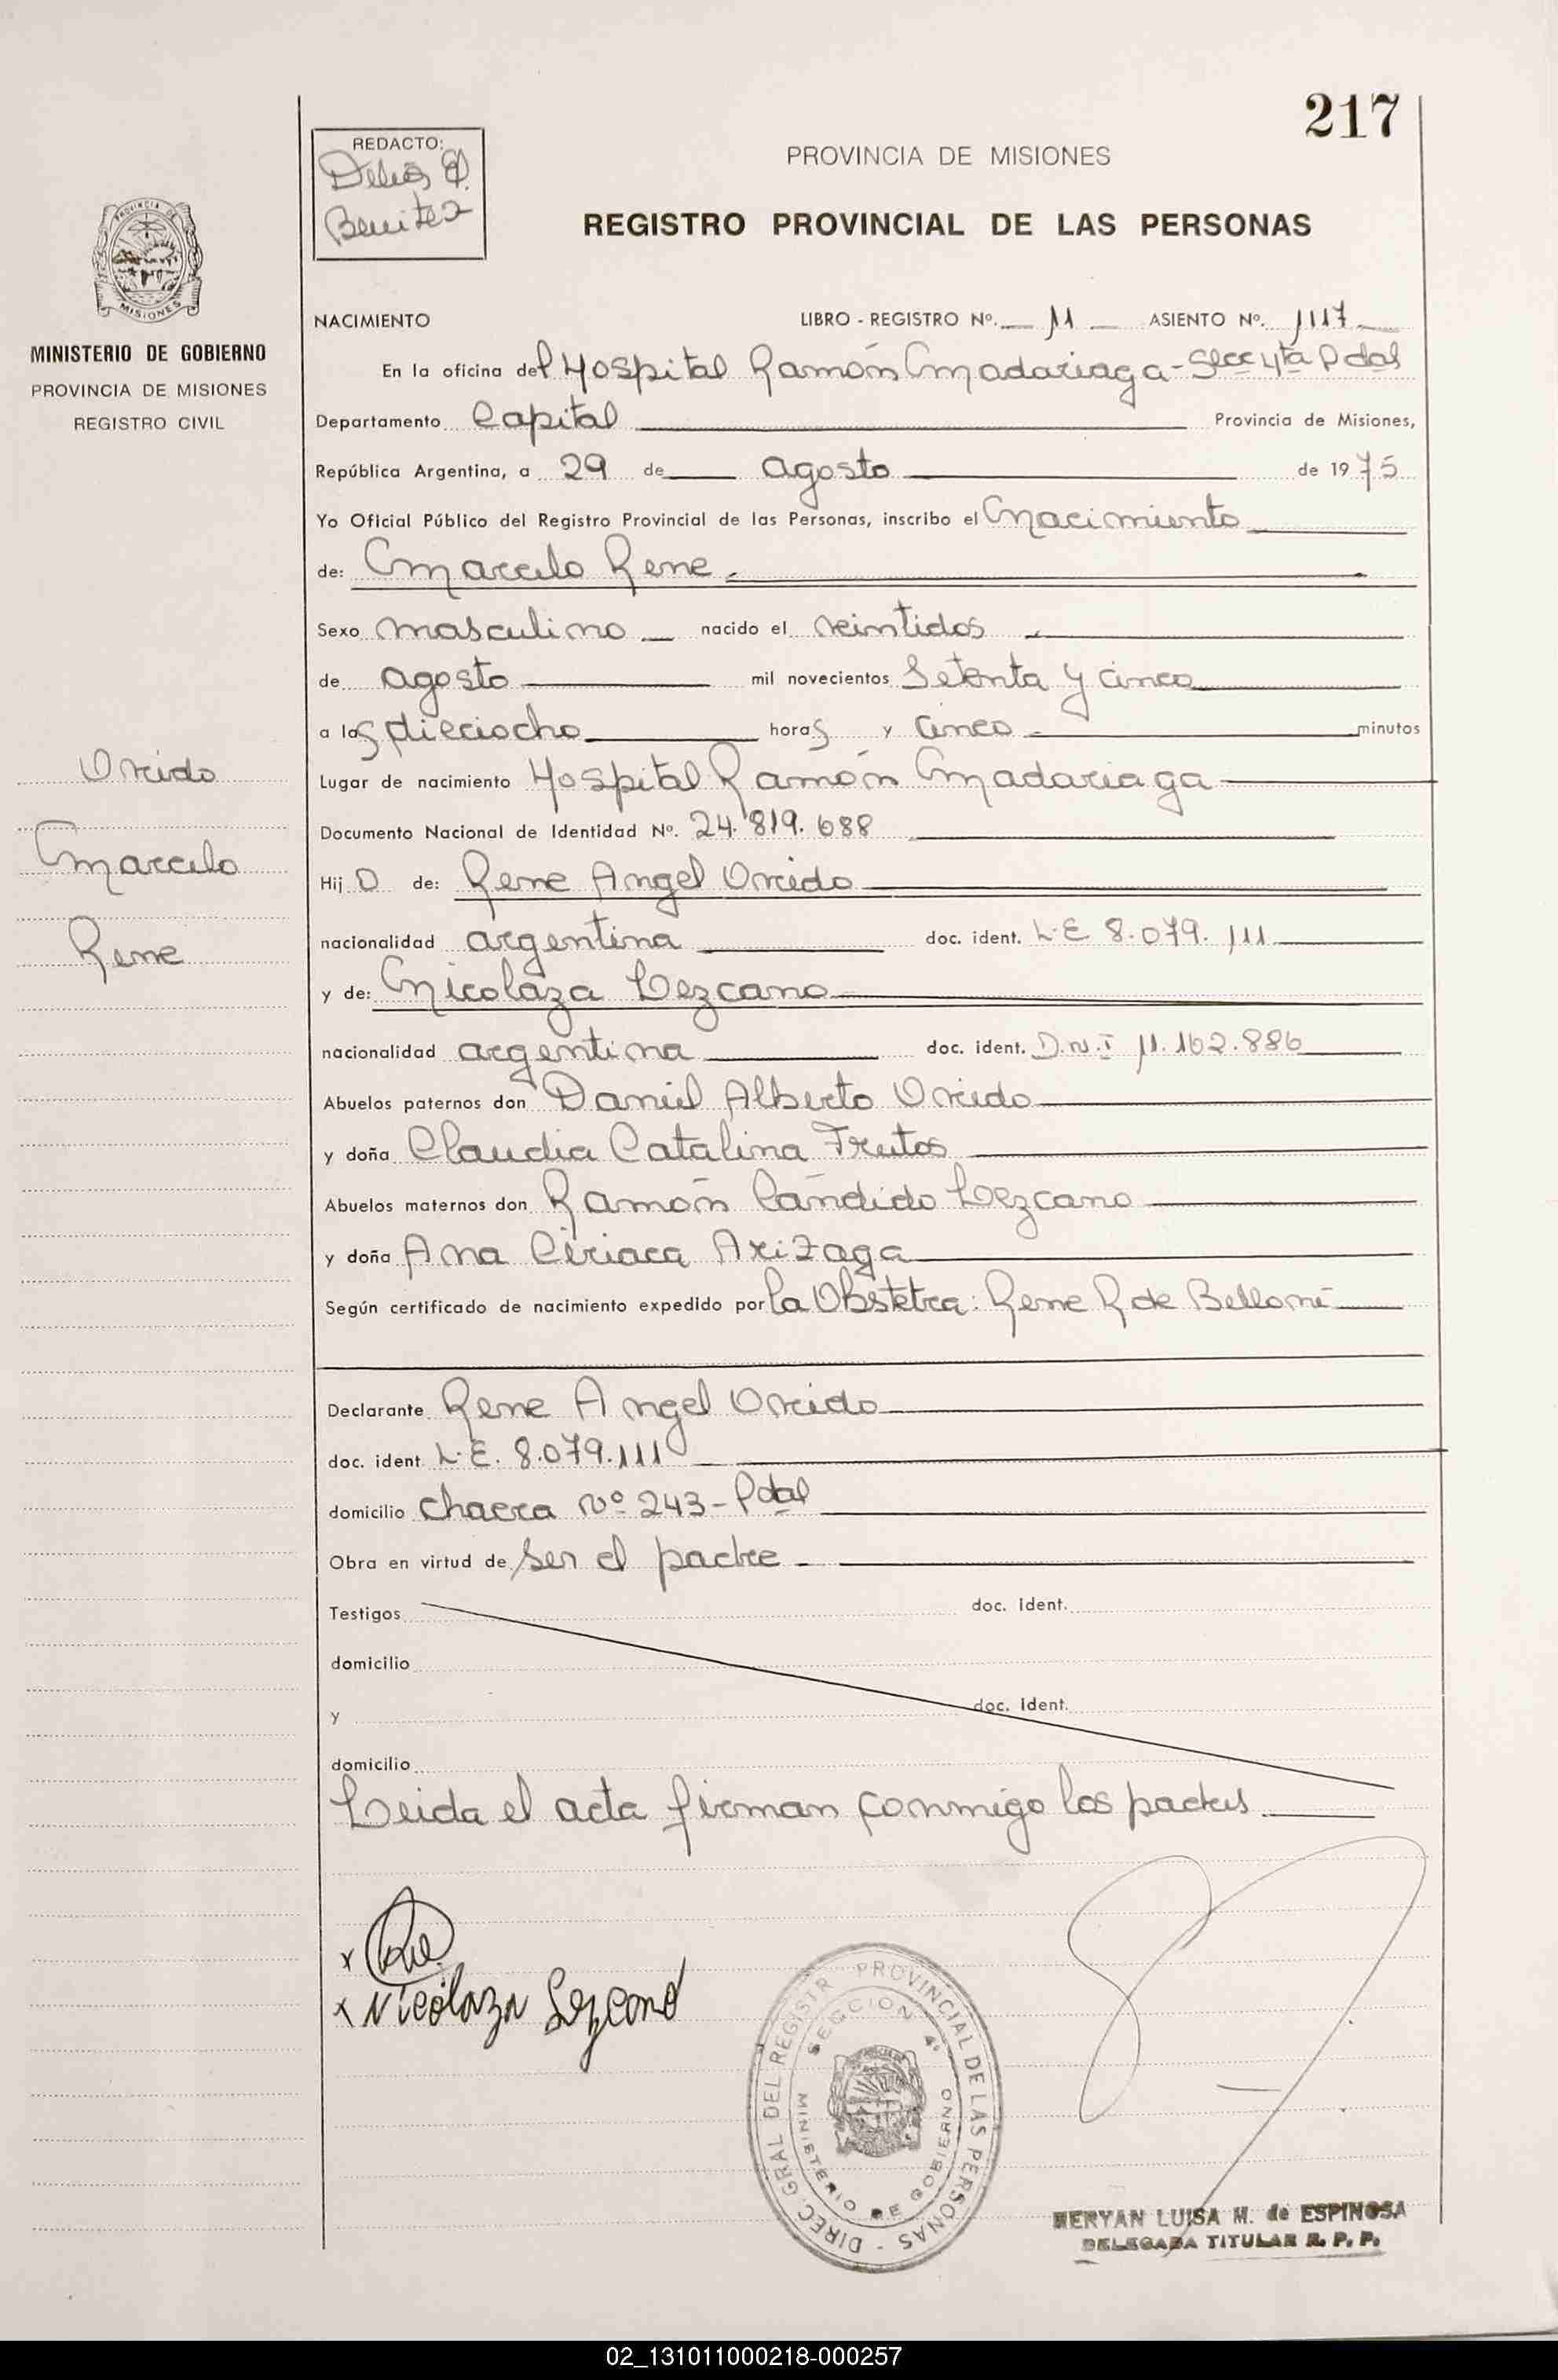 217
REDACTO:
Delia
Benitez
PROVINCIA DE MISIONES
REGISTRO PROVINCIAL DE LAS PERSONAS
PROVINCIA DE
MISIONES
MINISTERIO DE GOBIERNO
PROVINCIA DE MISIONES
REGISTRO CIVIL
Oviedo
Marcelo
Rene
NACIMIENTO LIBRO - REGISTRO Nº. 11 ASIENTO Nº. 1117
En la oficina del Hospital Ramón Madariaga - Secc 4ta Pdas
Departamento Capital Provincia de Misiones,
República Argentina, a 29 de agosto de 1975
Yo Oficial Público del Registro Provincial de las Personas, inscribo el Nacimiento
de: Marcelo Rene.
Sexo masculino nacido el veintidos
de agosto mil novecientos Setenta y cinco
a las dieciocho horas y cinco minutos
Lugar de nacimiento Hospital Ramón Madariaga
Documento Nacional de Identidad Nº. 24.819.688
Hijo de: Rene Angel Oviedo
nacionalidad argentina doc. ident. L.E 8.079.111
y de: Nicolaza Lezcano
nacionalidad argentina doc. ident. D.N.I 11.162.886
Abuelos paternos don Daniel Alberto Oviedo
y doña Claudia Catalina Frutos
Abuelos maternos don Ramón Cándido Lezcano
y doña Ana Ciriaca Arizaga
Según certificado de nacimiento expedido por la Obstetra: Rene R de Belloni
Declarante Rene Angel Oviedo
doc. ident. L.E. 8.079.111
domicilio Chacra Nº 243 - Pdas
Obra en virtud de Ser el padre
Testigos doc. ident.
domicilio
y doc. ident.
domicilio
Leida el acta firman conmigo los padres
x
x Nicolaza Lezcano
DIREC. GRAL DEL REGISTR PROVINCIAL DE LAS PERSONAS
SECCION 4ª
MINISTERIO DE GOBIERNO
MERYAN LUISA M. de ESPINOSA
DELEGADA TITULAR R. P. P.
02_131011000218-000257